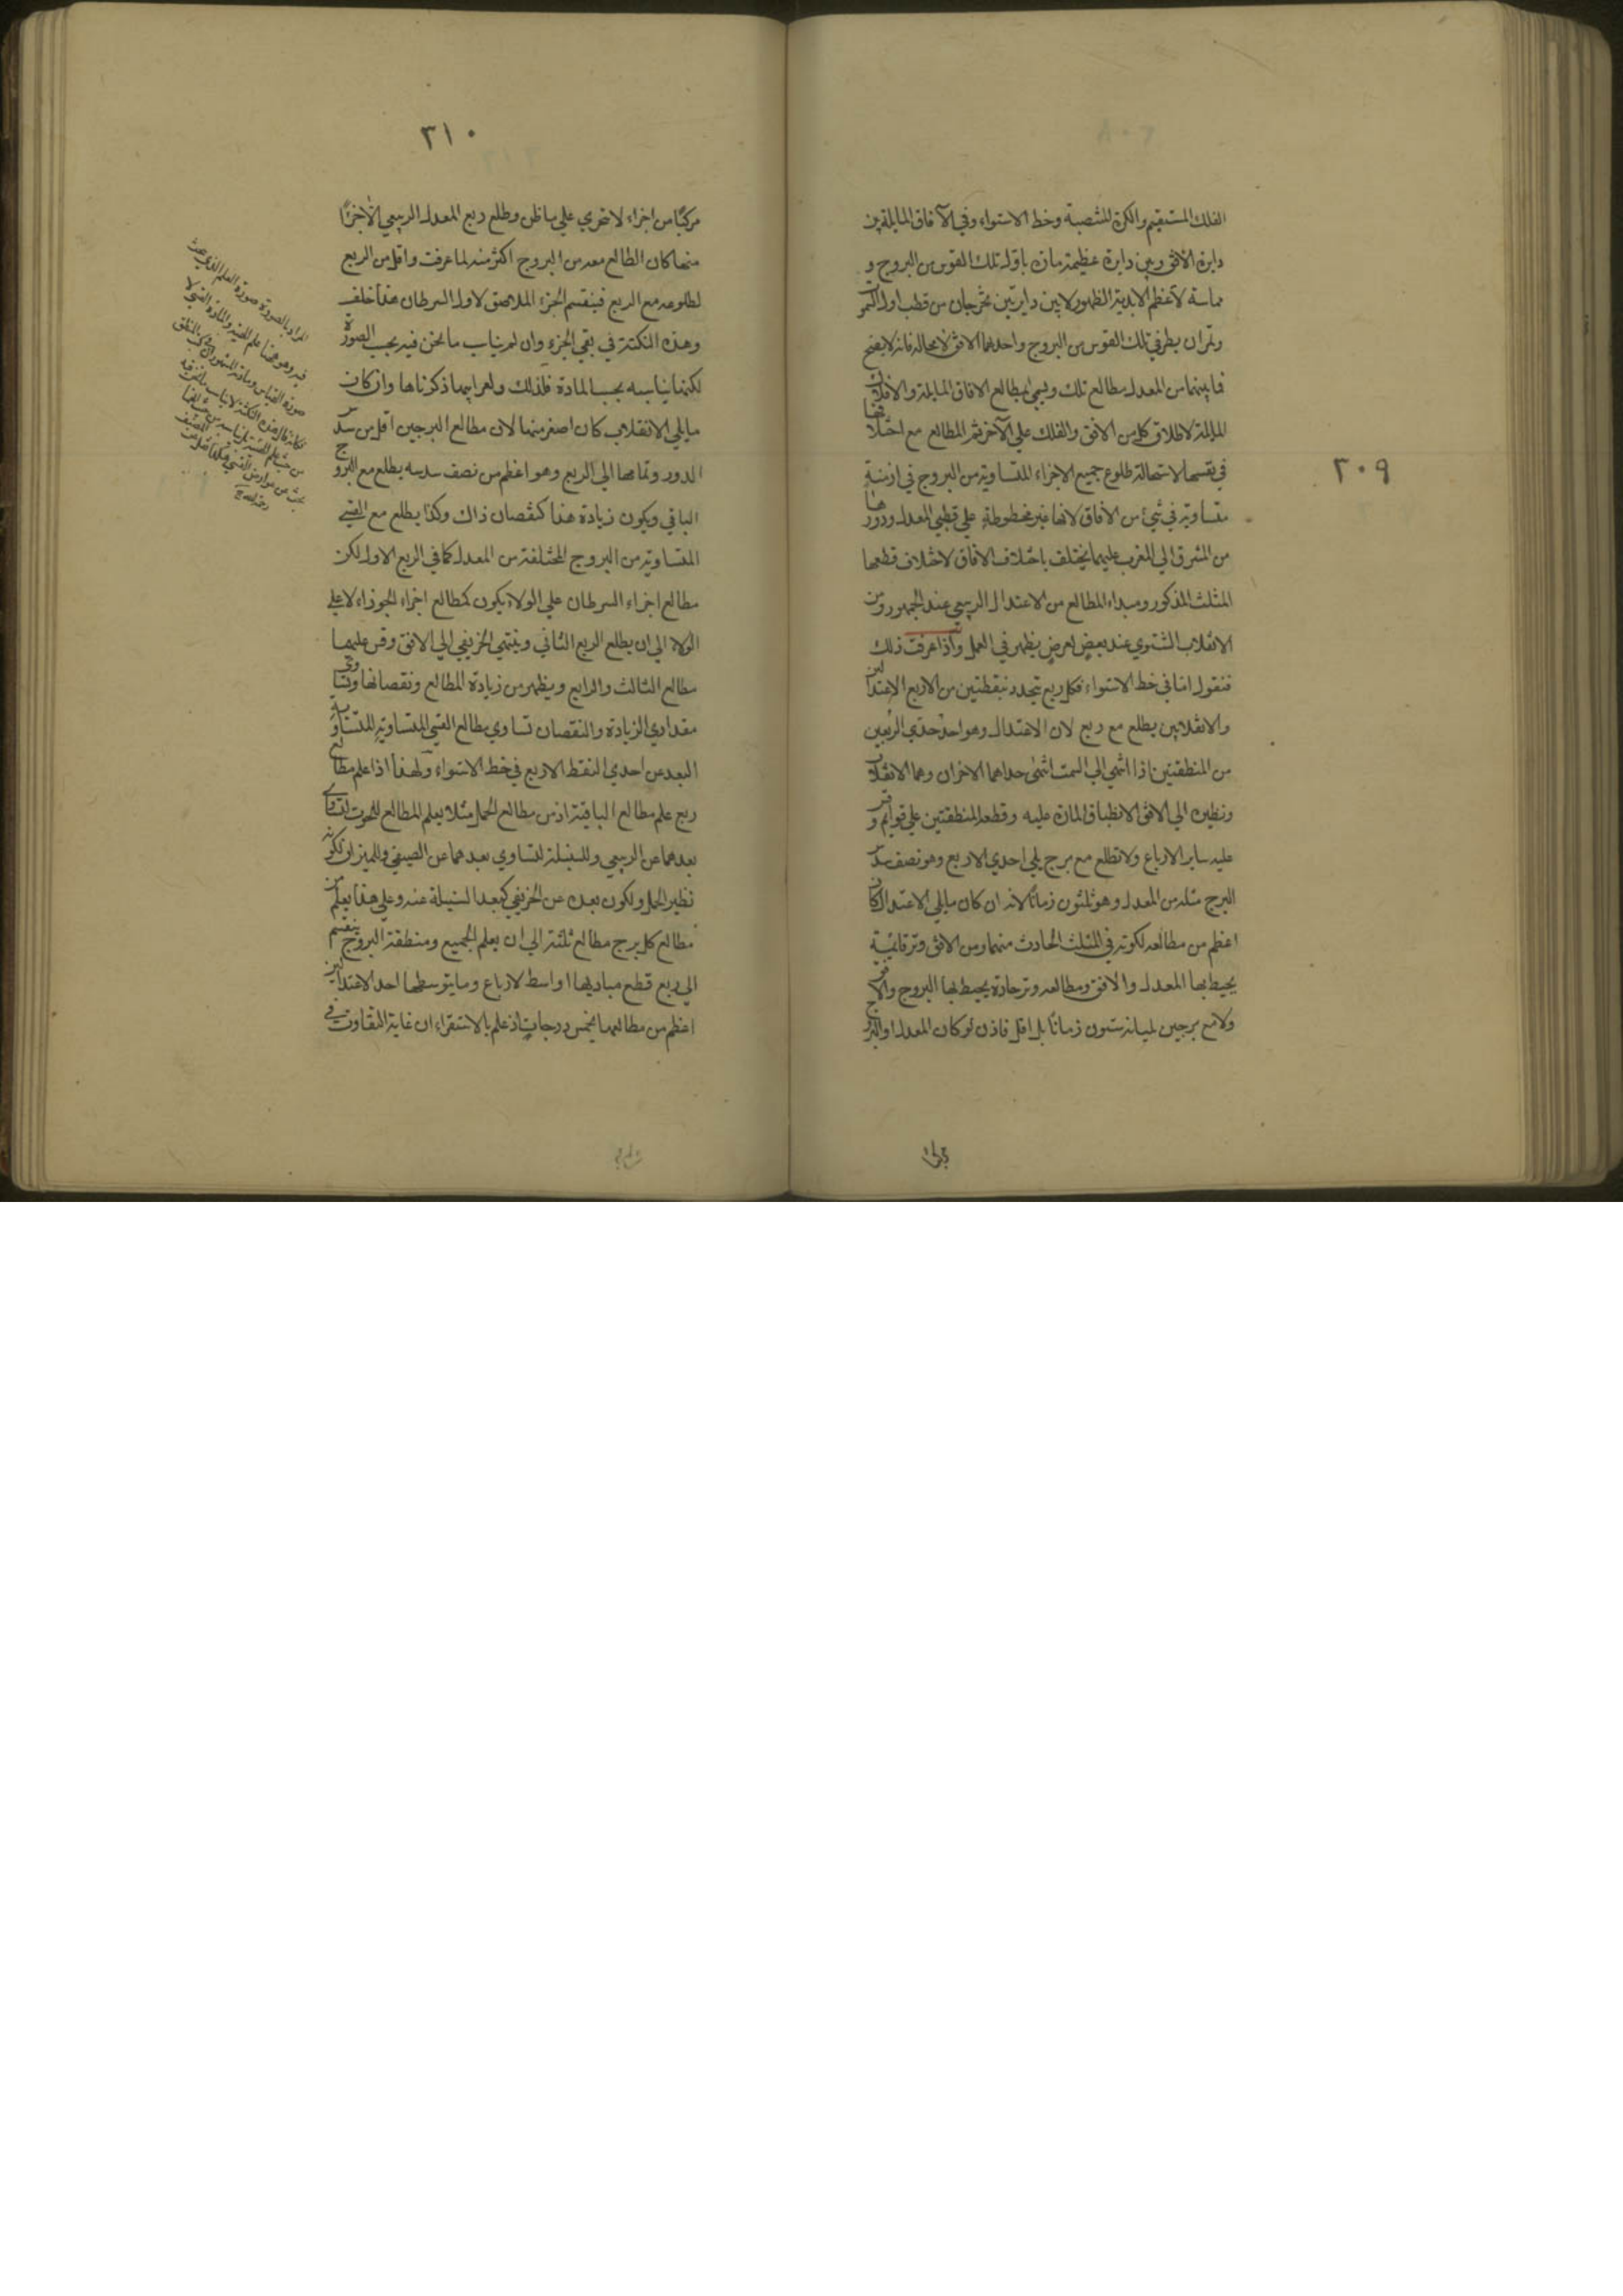 ٣٠٩
الفلك المستقيم والكرة المنتصبة وخط الاستواء وفي الآفاق المايلة بين
دايرة الافق وبين دايرة عظيمة مارة باول تلك القوس من البروج و
مماسة لاعظم الابدية الظهور لا بين دايرتين تخرجان من قطب اول
وتمران بطرفي تلك القوس من البروج واحديهما الافق لا محالة فانه لا يصح
فما بينهما من المعدل مطالع تلك ويسمي بمطالع الافاق المايلة والافلاك
المايلة لاطلاق كل من الافق والفلك علي الآخر ثم المطالع مع اختلافها
في نفسها لاستحالة طلوع جميع الاجزاء المتساوية من البروج في ازمنة
متساوية في شيء من الافاق لانها غير مخطوطة علي قطبي المعدل ودورها
من المشرق الي المغرب عليهما يختلف باختلاف الافاق لاختلاف قطعها
المثلث المذكور ومبداء المطالع من الاعتدال الربيعي عند الجمهور ومن
الانقلاب الشتوي عند بعض لغرض يظهر في العمل واذا عرفت ذلك
فنقول اما في خط الاستواء فكل ربع يتحدد بنقطتين من الاربع الاعتدالين
والانقلابين يطلع مع ربع لان الاعتدال وهو احد حدي الربعين
من المنطقتين اذا انتهي الي السمت انتهي حداهما الاخران وهما الانقلاب
ونظيره الي الافق لانطباق المارة عليه وقطعه المنطقتين علي قوايم وقس
عليه ساير الارباع ولا تطلع مع برج يلي احدي الاربع وهو نصف سدس
البرج مثله من المعدل وهو ثلثون زمانا لانه ان كان مما يلي الاعتدال كان
اعظم من مطالعه لكونه في المثلث الحادث منهما ومن الافق وتر قائمة
يحيط بها المعدل والافق ومطالعه وتر حادة يحيط بها البروج والافق
ولا مع برجين يليانه ستون زمانا بل اقل فاذن لو كان المعدل او البروج
٣١٠
مركبا من اجزاء لا تتجزي علي ما ظن وطلع ربع المعدل الربيعي الا جزءا
منها كان الطالع معه من البروج اكثر منه لما عرفت واقل من الربع
لطلوعه مع الربع فينقسم الجزء الملاصق لاول السرطان هذا خلف
وهذه النكتة في نفي الجزء وان لم يناسب ما نحن فيه بحسب الصورة
لكنها يناسبه بحسب المادة فلذلك ولغرابتها ذكرناها وان كان
مما يلي الانقلاب كان اصغر منها لان مطالع البرجين اقل من سدس
الدور وتمامها الي الربع وهو اعظم من نصف سدسه يطلع مع البرج
الباقي ويكون زيادة هذا كنقصان ذاك وكذا يطلع مع القسي
المتساوية من البروج المختلفة من المعدل كما في الربع الاول لكن
مطالع اجزاء السرطان علي الولاء يكون كمطالع اجزاء الجوزاء لا علي
الولاء الي ان يطلع الربع الثاني وينتهي الخريفي الي الافق وقس عليهما
مطالع الثالث والرابع ويظهر من زيادة المطالع ونقصانها وتساوي
مقداري الزيادة والنقصان تساوي مطالع القسي المتساوية المتساوية
البعد عن احدي النقط الاربع في خط الاستواء ولهذا اذا علم مطالع
ربع علم مطالع الباقية اذ من مطالع الحمل مثلا يعلم المطالع للحوت لتساوي
بعدهما عن الربيعي وللسنبلة لتساوي بعدهما عن الصيفي وللميزان لكونه
نظير الحمل ولكون بعده عن الخريفي كبعد السنبلة عنه وعلي هذا يعلم من
مطالع كل برج مطالع ثلثة الي ان يعلم الجميع ومنطقة البروج ينقسم
الي اربع قطع مباديها اواسط الارباع وما يتوسطها احد الاعتدالين
اعظم من مطالعها بخمس درجات اذ علم بالاستقراء ان غاية التفاوت في
المراد بالصورة صورة العلم الذي يبحث
فيه وهو ههنا علم الهيئة والمادة التي لا